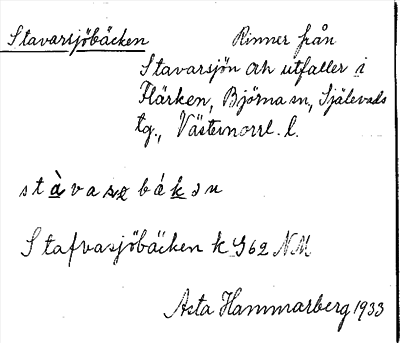 Stavarsjöbäcken Rinner från
Stavarsjön och utfaller i
Flärken, Björna sn, Själevads
tg., Västernorrl. l.
Stafvasjöbäcken k 962 NM
Asta Hammarberg 1933